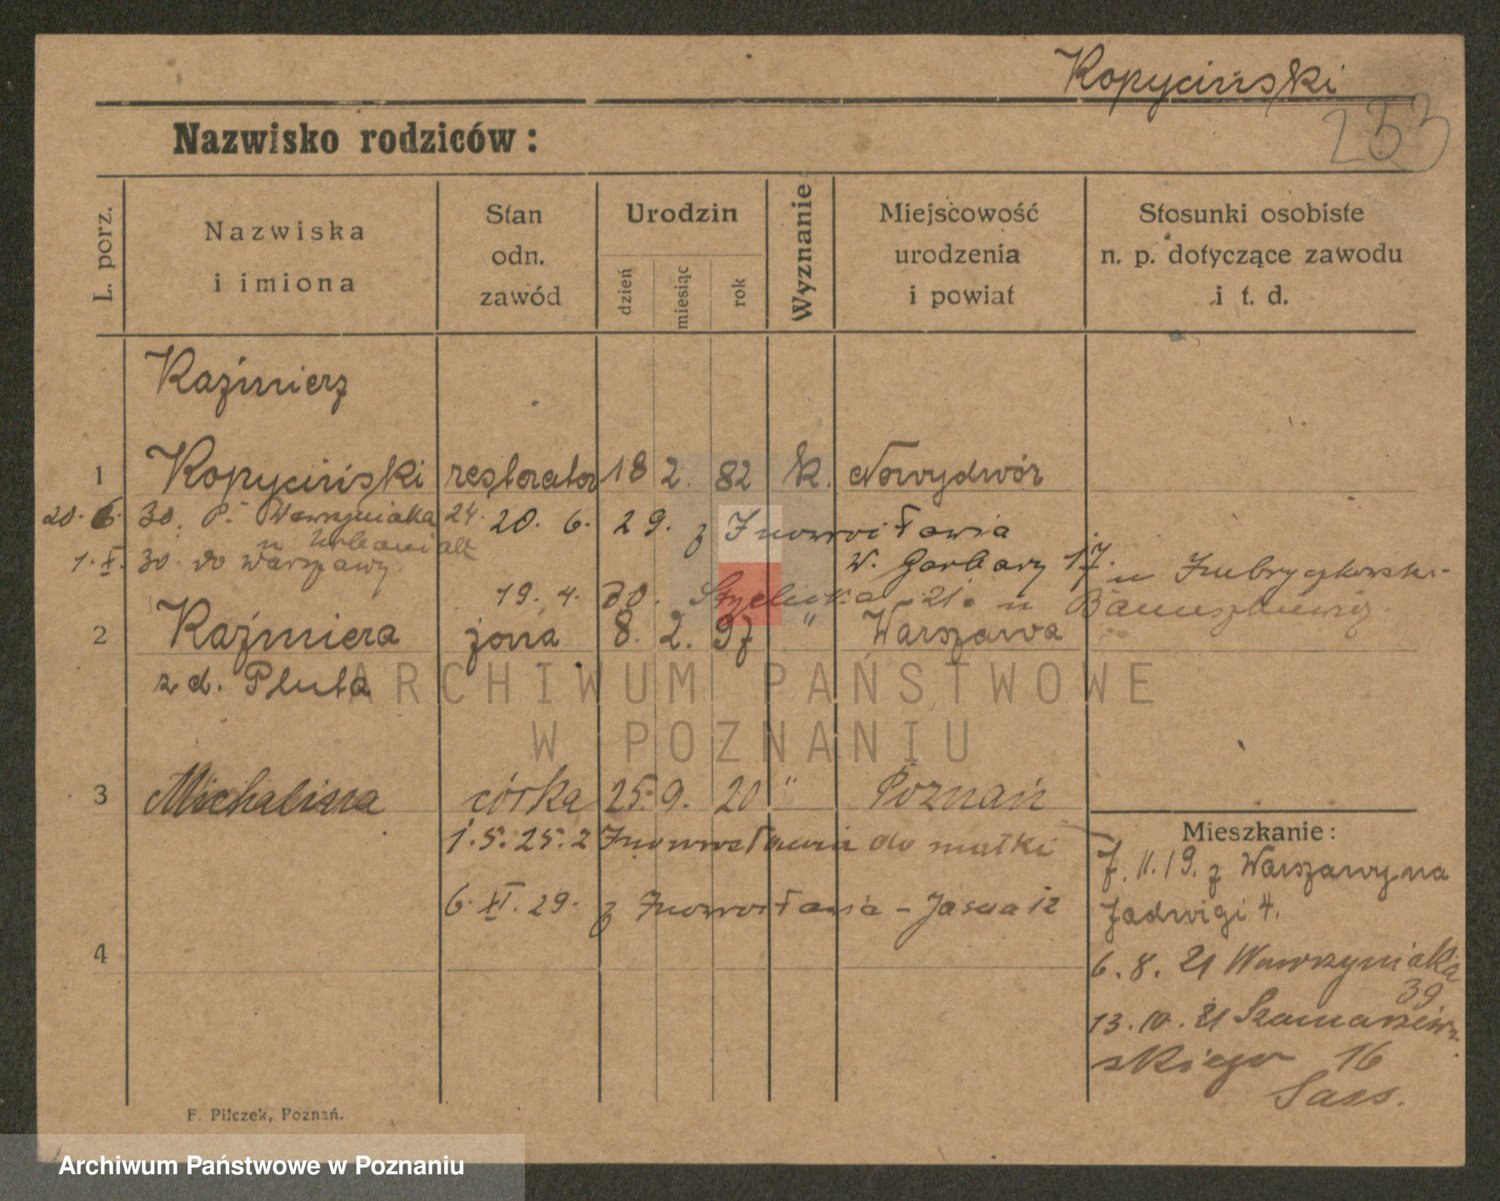 Kopyciński
233
Nazwisko rodziców:
L. porz.
Nazwiska
i imiona
Stan
odn.
zawód
Urodzin
dzień
miesiąc
rok
Wyznanie
Miejscowość
urodzenia
i powiat
Stosunki osobiste
n. p. dotyczące zawodu
i t. d.
Kaźmierz
1 Kopyciński restorator 18 2. 82 k. Nowydwór
20. 6. 30. Wawrzyniaka 24. 20. 6. 29. z Inowrocławia
u
1. X. 30. do Warszawy W. Garbary 17. u
19. 4. 30. 21. u
2 Kaźmiera żona 8. 2. 97 " Warszawa
z d. Pluta
ARCHIWUM PAŃSTWOWE
W POZNANIU
3 Michalina córka 25. 9. 20 " Poznań
1. 5. 25. z Inowrocławia do matki
6. XI. 29. z Inowrocławia - Jasna 12
4
Mieszkanie:
7. 11. 19. z Warszawy na
Jadwigi 4.
6. 8. 21 Wawrzyniaka
39
13. 10. 21 Szamarzew-
skiego 16
Sass.
F. Pilczek, Poznań.
Archiwum Państwowe w Poznaniu